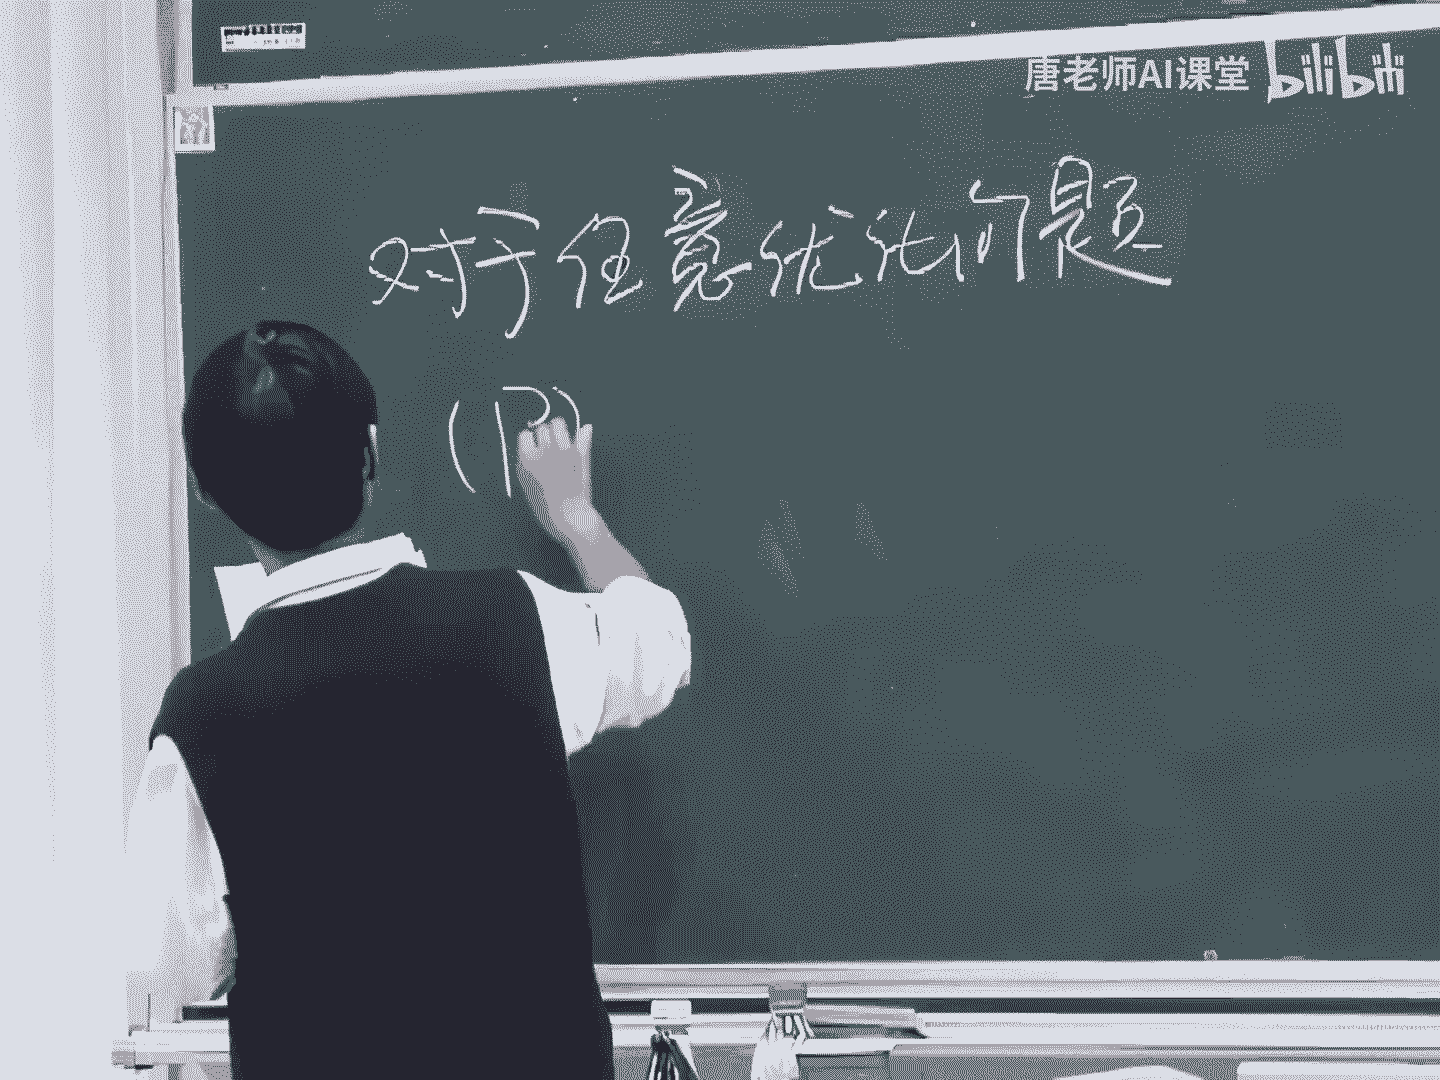 唐老师AI课堂 bilibili
对于任意优化问题
(P)